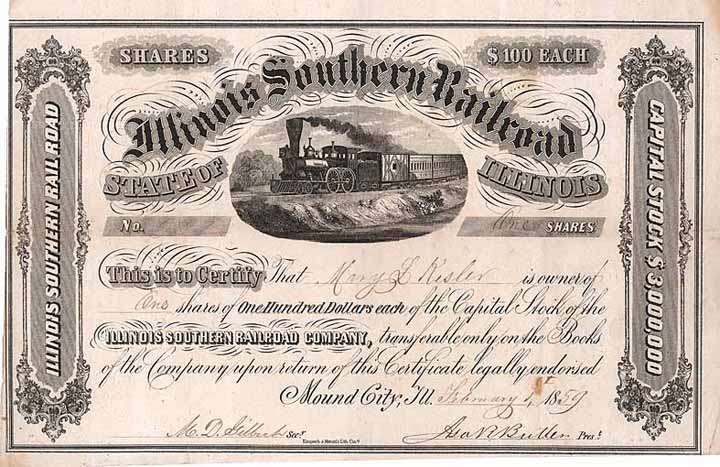 SHARES
$100 EACH
Illinois Southern Railroad
STATE OF ILLINOIS
No.
One SHARES
ILLINOIS SOUTHERN RAILROAD
CAPITAL STOCK $3,000,000
This is to Certify That Mary E Kesler is owner of
One shares of One Hundred Dollars each of the Capital Stock of the
ILLINOIS SOUTHERN RAILROAD COMPANY, transferable only on the Books
of the Company upon return of this Certificate legally endorsed
Mound City, Ill. February 1st 1859
M. D. Secy.
Prest.